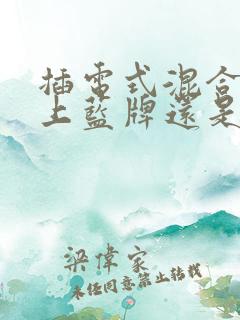 插電式混合
上藍牌還是
梁偉家
未经同意禁止转载